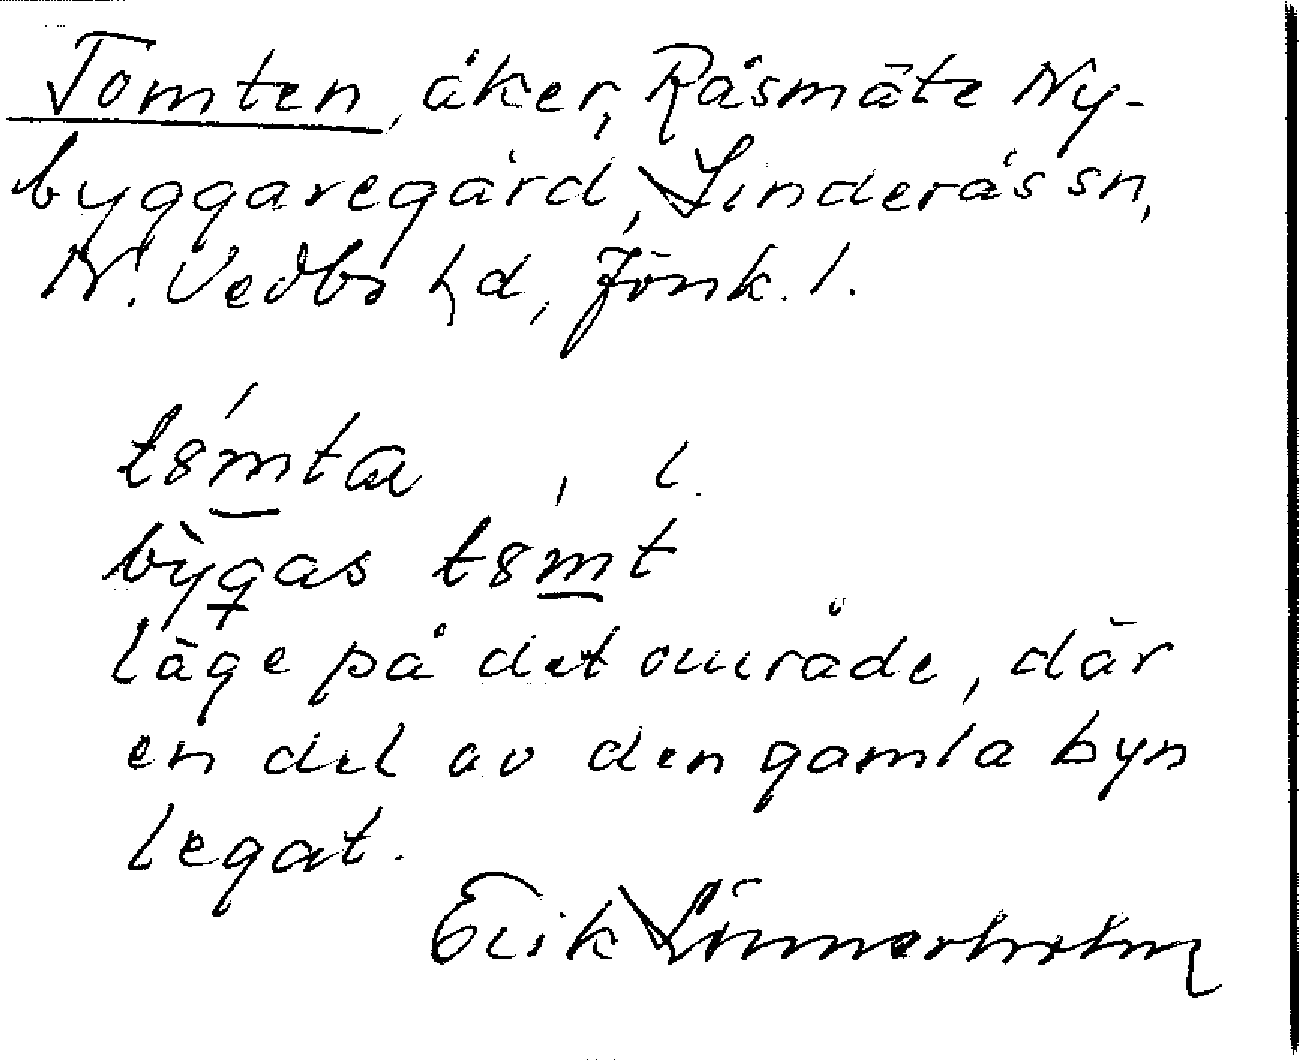 Tomten, åker, Råsmäte Ny-
byggaregård, Linderås sn,
N. Vedbo hd, Jönk. l.
t8́mta , l.
bỳgas t8mt
läge på det område, där
en del av den gamla byn
legat.
Erik Linnerholm